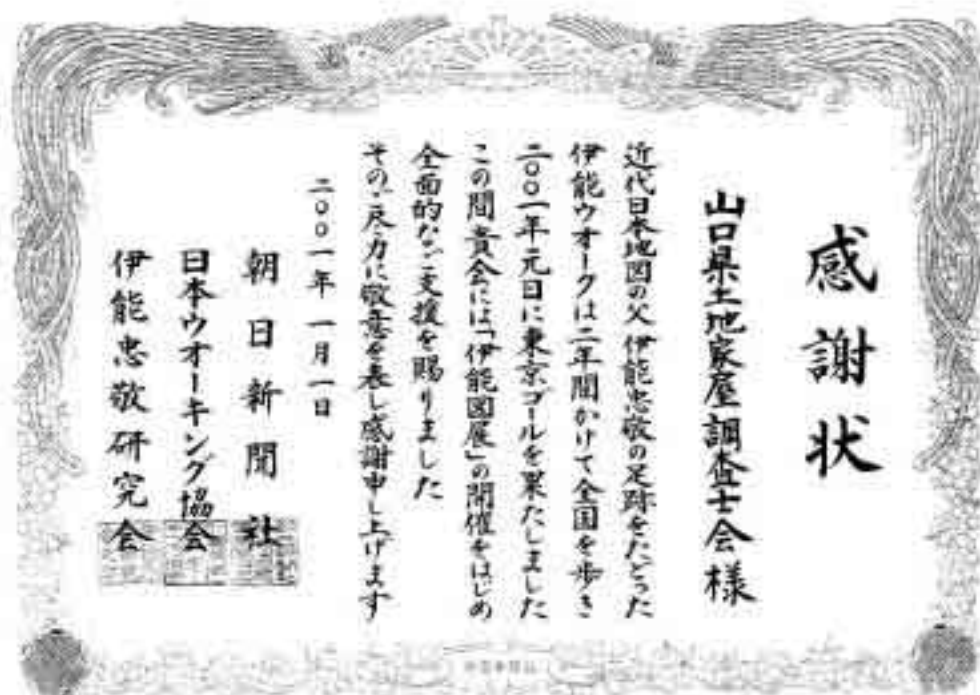 感謝状
山口県土地家屋調査士会様
近代日本地図の父伊能忠敬の足跡をたどった
伊能ウオークは二年間かけて全国を歩き
二〇〇一年元日に東京ゴールを果たしました
この間貴会には「伊能図展」の開催をはじめ
全面的なご支援を賜りました
そのご尽力に敬意を表し感謝申し上げます
二〇〇一年一月一日
朝日新聞社
日本ウオーキング協会
伊能忠敬研究会